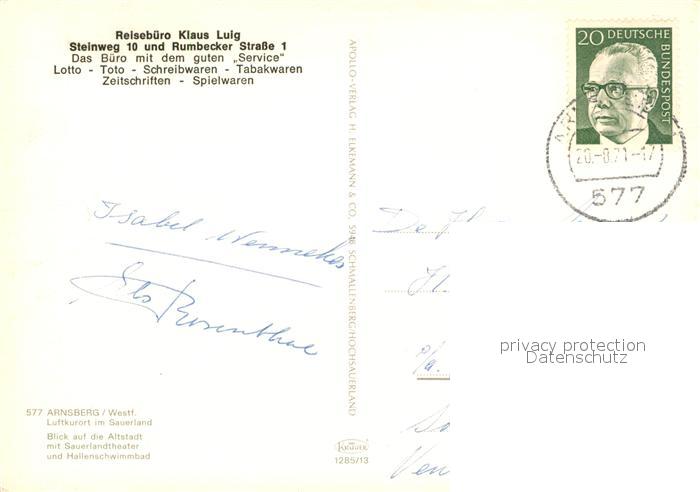 Reisebüro Klaus Luig
Steinweg 10 und Rumbecker Straße 1
Das Büro mit dem guten „Service"
Lotto - Toto - Schreibwaren - Tabakwaren
Zeitschriften - Spielwaren
20 DEUTSCHE
BUNDESPOST
20.-8.71-17
577
APOLLO-VERLAG H. ELKEMANN & CO. 5948 SCHMALLENBERG/HOCHSAUERLAND
Isabel Wennekes
Els Rosenthal
De
p/a.
Ven
privacy protection
Datenschutz
577 ARNSBERG / Westf.
Luftkurort im Sauerland
Blick auf die Altstadt
mit Sauerlandtheater
und Hallenschwimmbad
KRÜGER
1285/13